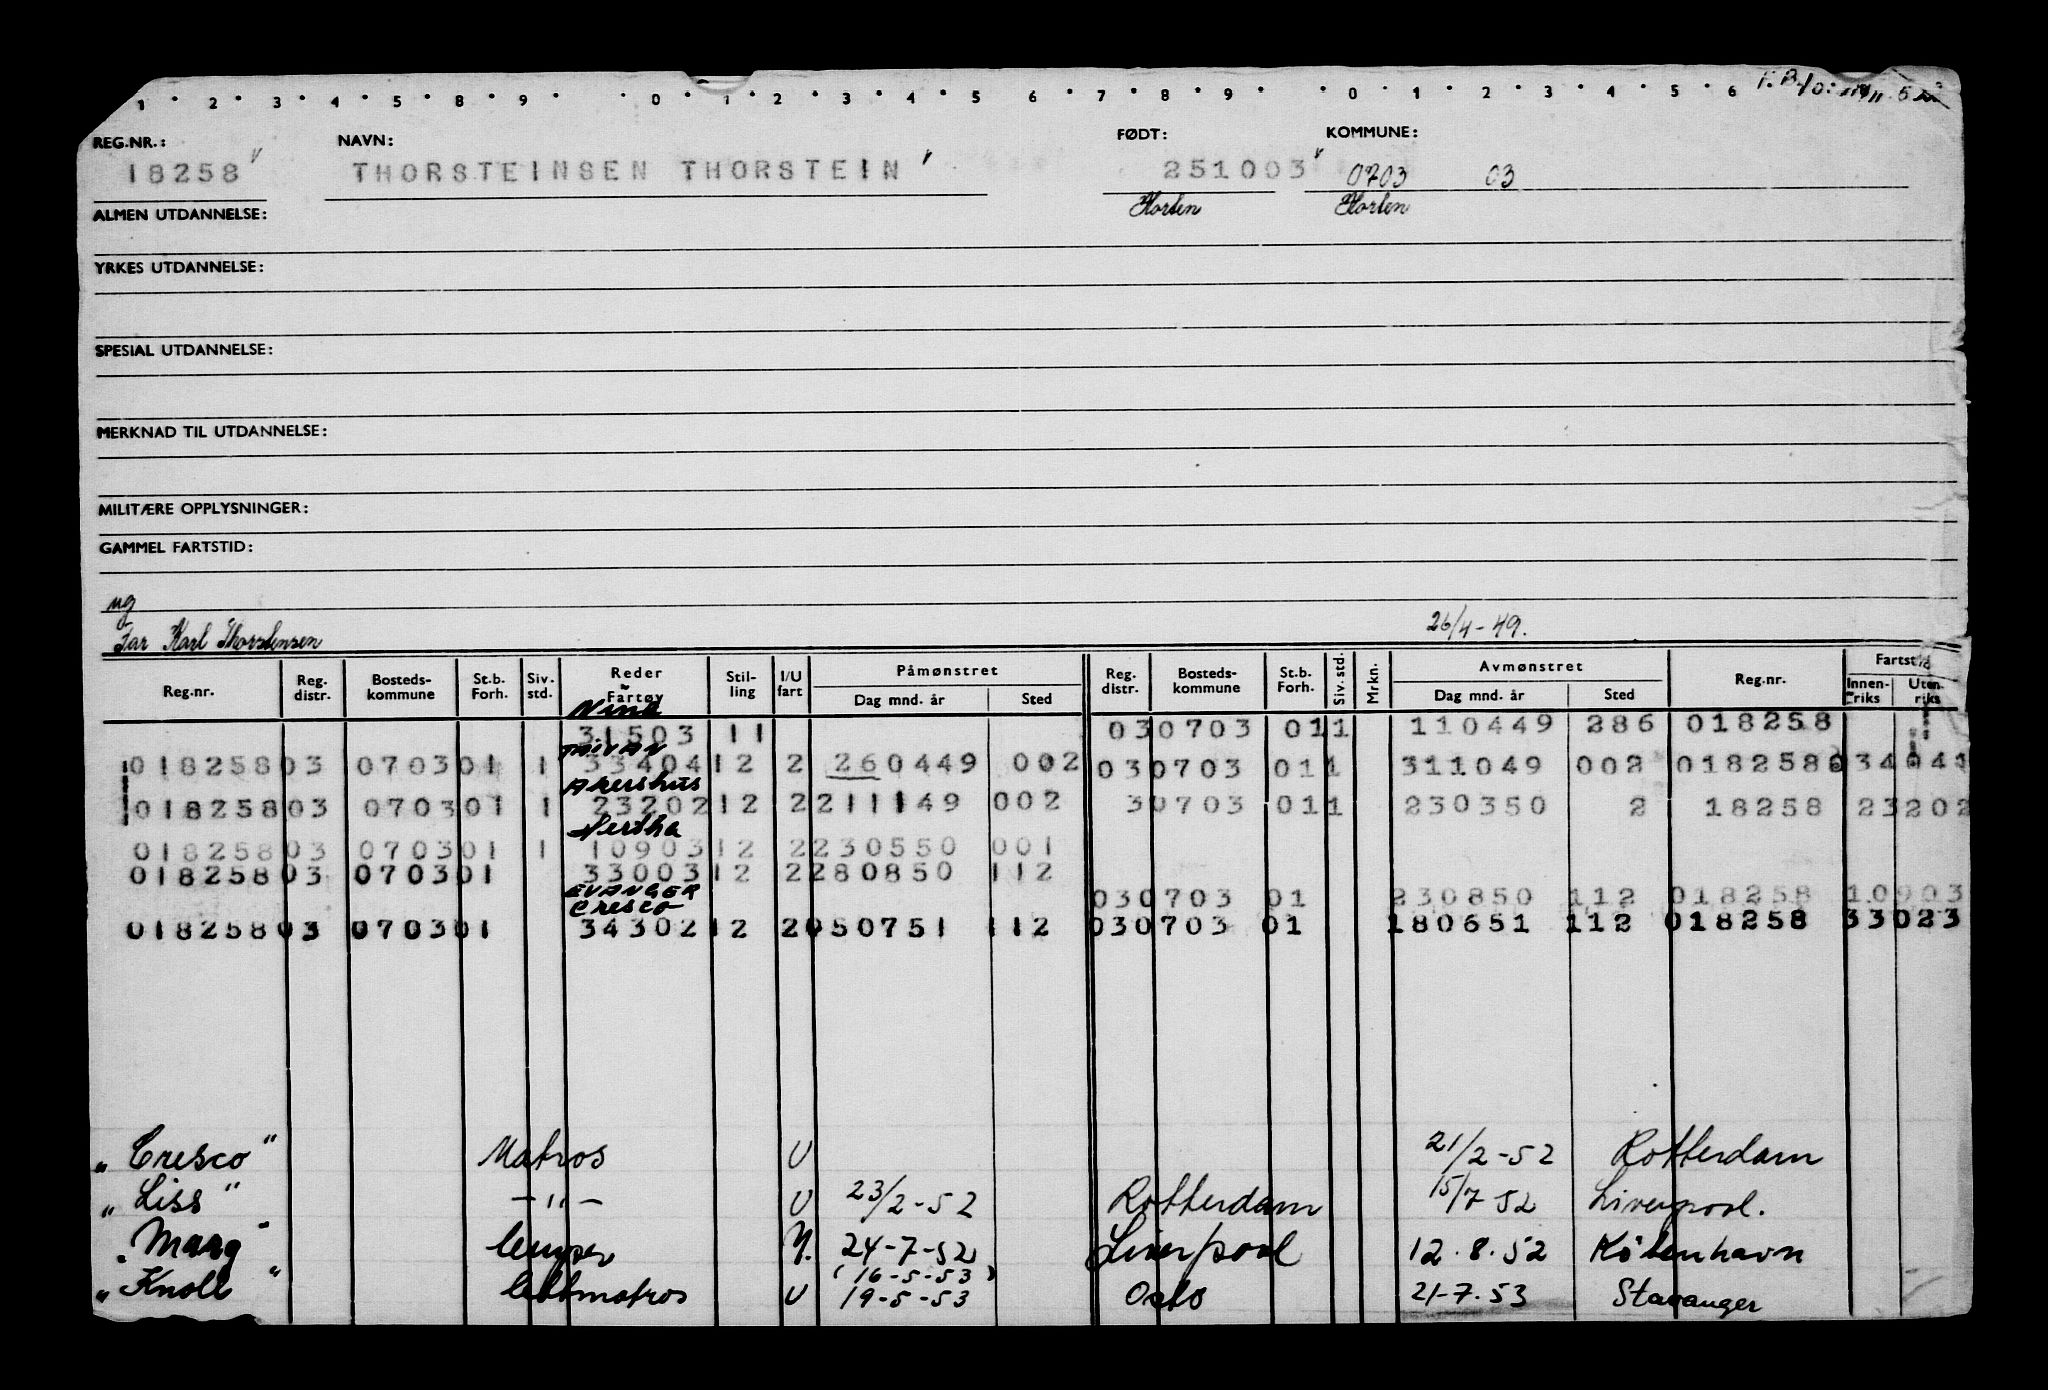 1 2 3 4 5 8 9 0 1 2 3 4 5 6 7 8 9 0 1 2 3 4 5 6
REG.NR.: NAVN: FØDT: KOMMUNE:
18258 THORSTEINSEN THORSTEIN 251003 0703 03
Horten Horten
ALMEN UTDANNELSE:
YRKES UTDANNELSE:
SPESIAL UTDANNELSE:
MERKNAD TIL UTDANNELSE:
MILITÆRE OPPLYSNINGER:
GAMMEL FARTSTID:
ug
Far Karl Thorstensen 26/4-49.
Reg.nr. Reg. distr. Bosteds- kommune St.b. Forh. Siv. std. Reder Fartøy Stil- ling I/U fart Påmønstret Dag mnd. år Sted Reg. distr. Bosteds- kommune St.b. Forh. Siv. std. Mrkn. Avmønstret Dag mnd. år Sted Reg.nr. Fartstid Innen- riks Uten- riks
Nina
31503 11 030703 011 110449 286 018258
TAIVAN
01825803 070301 1 33404 12 2 260449 002 030703 011 311049 002 018258
Akershus
01825803 070301 1 23202 12 2 211149 002 30703 011 230350 2 18258 23202
Hertha
01825803 070301 1 10903 12 2 230550 001
01825803 070301 33003 12 2 280850 112
EVANGER 030703 01 230850 112 018258 10903
Cresco
01825803 070301 34302 12 2 050751 112 030703 01 180651 112 018258 33023
„Cresco" Matros U 21/2-52 Rotterdam
„Liss" -"- U 23/2-52 Rotterdam 15/7 52 Liverpool.
„Marg" 24-7-52 Liverpool 12.8.52 København
(16-5-53)
„Knoll" lettmatros U 19-5-53 Oslo 21-7.53 Stavanger